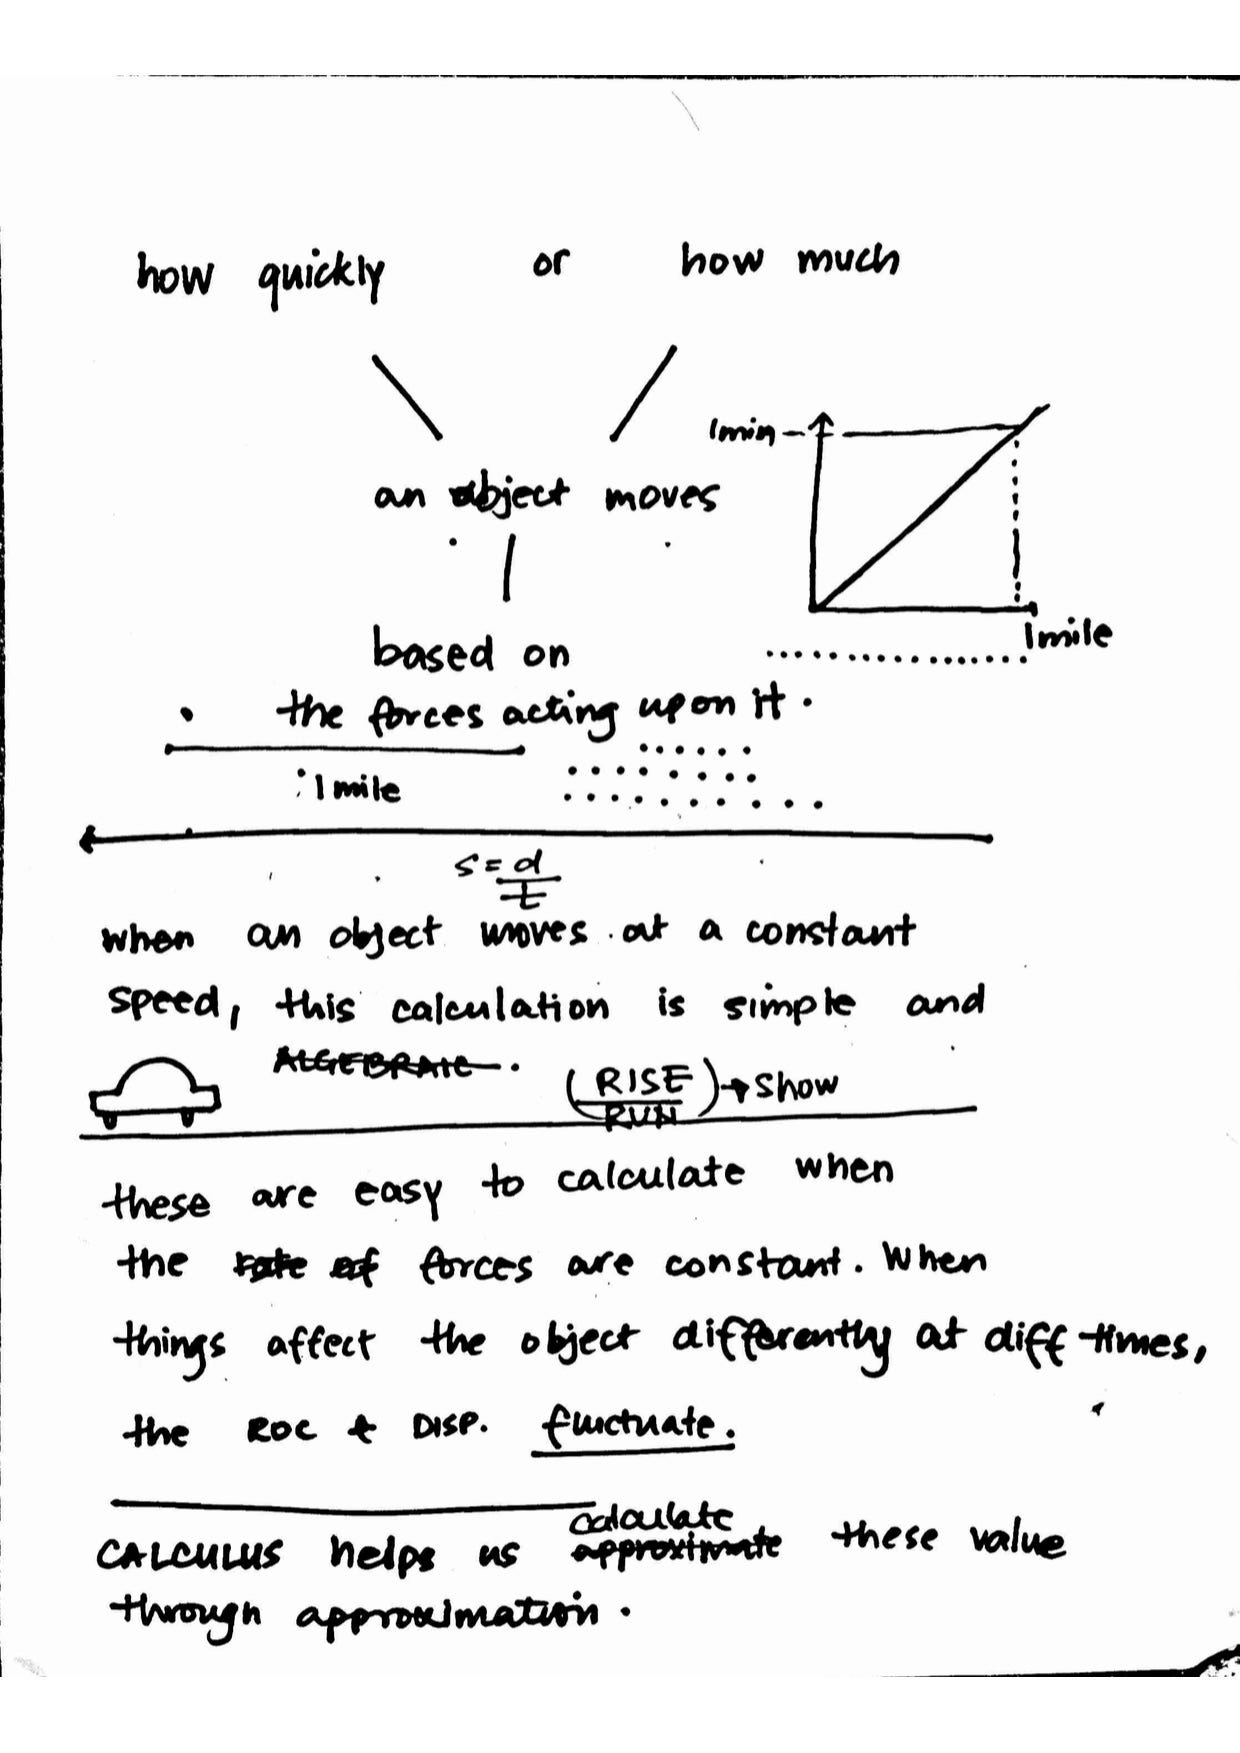 how quickly or how much
1min
an object moves
based on
1mile
the forces acting upon it.
1 mile
s = d
t
when an object moves at a constant
speed, this calculation is simple and
ALGEBRAIC.
(RISE
RUN) → Show
these are easy to calculate when
the rate of forces are constant. When
things affect the object differently at diff times,
the ROC & DISP. fluctuate.
calculate
CALCULUS helps us approximate these value
through approximation.